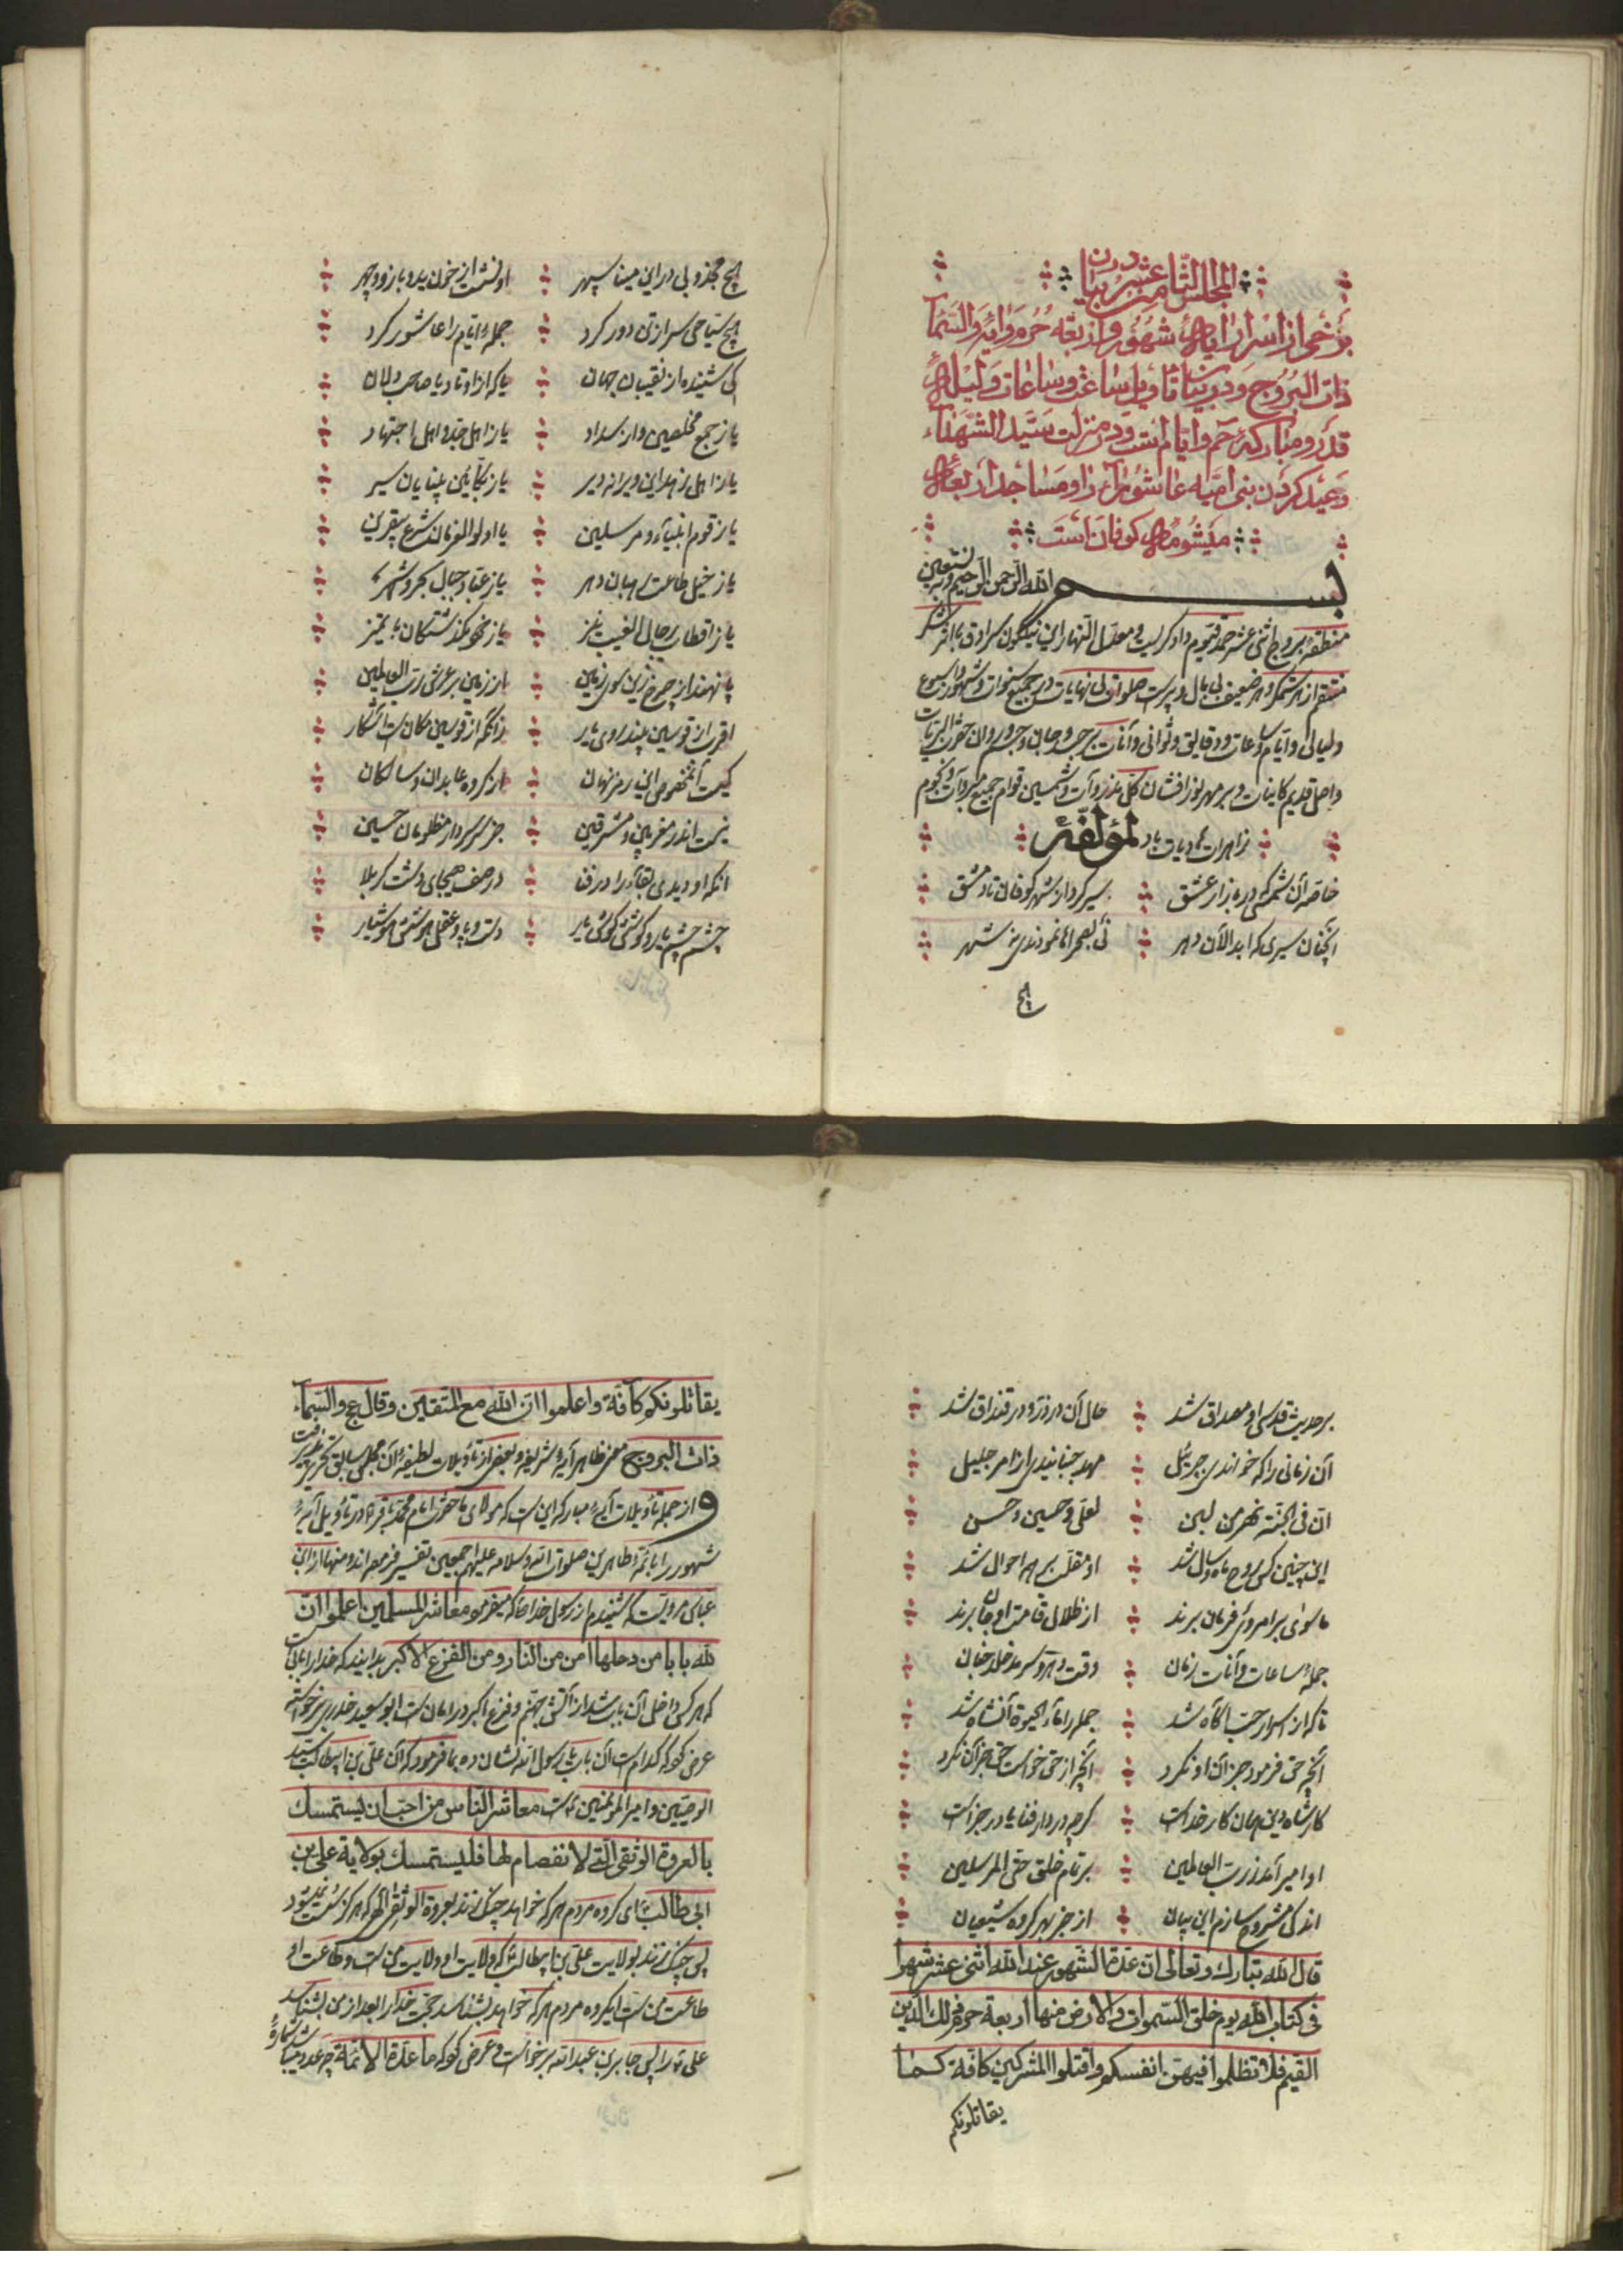 المجلس الثامن عشر در بیان
برخی از اسرار آیهٔ شهور و اربعة حرم و آیه والسماء
ذات البروج و در بیان تأویل ساعت و ساعات و لیلهٔ
قدر و مبارکهٔ حم و ایام است و در منزلت سید الشهداء
و عید کردن بنی امیه عاشورا را و مساجد اربعهٔ
میشومهٔ کوفان است
بسم الله الرحمن الرحیم وبه نستعین
منطقهٔ بروج اثنی عشر حمد قیوم دادگریست و معدل النهار این نیلگون سرادق با فر شکر
منتقم از هر ستمگر و هر ضعیف بی بال و پرست صلوات بی نهایات در جمیع سنوات و شهور و اسبوع
ولیالی و ایام و ساعات و دقایق و ثوانی و آنات بر جسد و جان و جسم و روان
و اصل قدیم کاینات و بر مهر نور افشان کل مذروآت و شمسین قوام جمیع مبروآت و نجوم
زاهرات هادیات باد لمؤلفه
خاصه آن شمسی که در بازار عشق سیر کرد از شهر کوفان تا دمشق
آنچنان سیری که ابدالان دهر نی بصحراها نمودندی نه شهر
هیچ
هیچ مجذوبی در این مینا سپهر او نشست از خون ید و بازو و چهر
هیچ سیاحی سر از تن دور کرد جمله ایام را عاشور کرد
کی شنیده از نقیبان جهان یا که از اوتاد یا صاحبدلان
یا ز جمع مخلصین و از سداد یا ز اهل جد و اهل اجتهاد
یا ز اهل زهد این ویرانه دیر یا ز بکائین سیر
یا ز قوم انبیآء و مرسلین یا اولوالعزمان شرع
یا ز خیل طاعت رهبان دهر یا ز عباد جبال بحر و شهر
یا ز اقطاب رجال الغیب نیز یا ز نحو گذشتگان با تمیز
پا نهند از چرخ زین سوی زمین از زمین بر عرش رب العالمین
اقرب از قوسین پندروی یار زانکه از قوسین مکان شد آشکار
کیست آنمخصوص این رمز نهان از گروه عابدان و سالکان
نیست اندر مغربین و مشرقین جز سر سردار مظلومان حسین
آنکه او دیدی بقآء را در فنا در صف هیجای دشت کربلا
چشم چشم یار و گوشش گوش یار دست و پا و عقل و هوشش هوشیار
بر حدیث قدسی او مصداق شد حال آن در روزه و در قنداق شد
آن زمانی را که خواندش جبرئیل مهد جنبانیدی از امر جلیل
ان فی الجنة نهر من لبن لعلی و حسین و حسن
این چنین کس روح ماه و سال شد او مقلب بر همه احوال شد
ماسوای بر امر وی فرمان برند از ظلال قامت او جان برند
جملهٔ ساعات و آنات زمان وقت دهر و سرمد خلد جنان
تا که از اسرار حب آگاه شد جمله را مآء الحیوة آنشاه شد
آنچه حق فرمود جز آن او نکرد آنچه از حق خواست حق جز آن نکرد
کار شاه دین همان کار خداست گرچه در دار فنا یا در جزاست
او امیر آمد ز رب العالمین بر تمام خلق حتی المرسلین
اندکی مشروح سازم این بیان از خبر بهر گروه شیعیان
قال الله تبارک وتعالی ان عدة الشهور عند الله اثنی عشر شهرا
فی کتاب الله یوم خلق السموات والارض منها اربعة حرم ذلك الدین
القیم فلا تظلموا فیهن انفسکم واقتلوا المشرکین کافة کما
یقاتلونکم
یقاتلونکم کافة واعلموا ان الله مع المتقین وقال ع والسماء
ذات البروج معنی ظاهر آیهٔ شریفه و بعض از تأویلات لطیفهٔ آن مجلس سابق تحریر پذیرفت
و از جملهٔ تأویلات آیهٔ مبارکه این است که مولای ما حضرت امام محمد باقر ع در تأویل آیهٔ
شهور را بائمهٔ طاهرین صلوات الله وسلامه علیهم اجمعین تفسیر فرموده اند و منها از ابن
عباس مرویست که شنیدم از رسول خدا ص که میفرمود معاشر المسلمین اعلموا ان
لله بابا من دخلها امن من النار ومن الفزع الاکبر بدانید که خدا را بابی است
که هر کس داخل آن باب شد از آتش جهنم و فزع اکبر در امان است ابو سعید خدری برخواسته
عرض کرد که کدام است آن باب یا رسول الله نشان ده بما فرمود که آن علی بن ابیطالب سید
الوصیین و امیر المؤمنین است معاشر الناس من احب ان یستمسك
بالعروة الوثقی التی لا نفصام لها فلیستمسك بولایة علی بن
ابی طالب ای گروه مردم هر که خواهد چنگ زند بعروة الوثقی که هرگز سست نمیشود
پس چنگ زند بولایت علی بن ابیطالب که ولایت او ولایت من است و طاعت او
طاعت من است ایگروه مردم هر که خواهد بشناسد حجت خدا را بعد از من بشناسد
علی ع را پس جابر بن عبدالله برخواست و عرض کرد که ما عدة الائمة چه عدد میباشد شمارهٔ